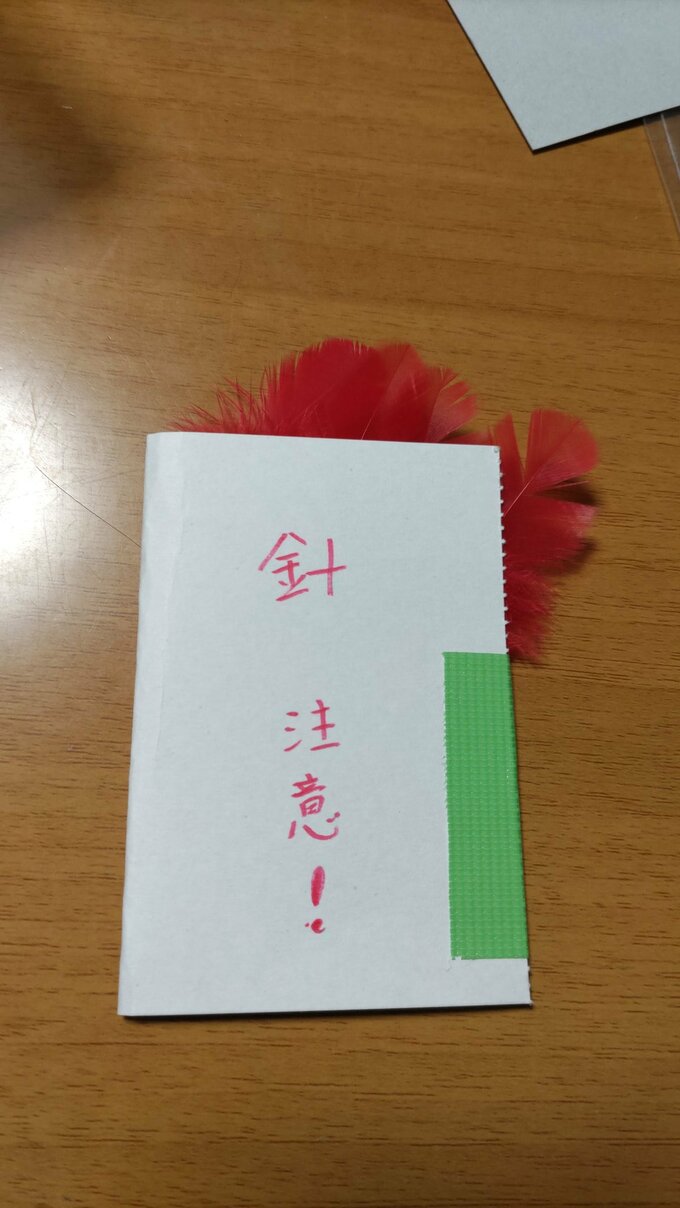 針 注意!